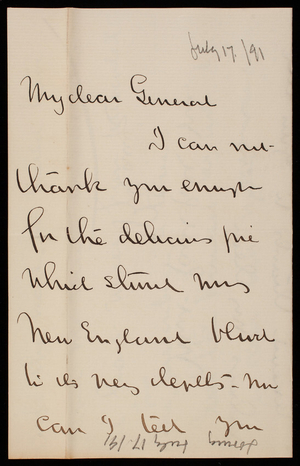 July 17/91
My dear General
I can not
thank you enough
for the delicious pie
which stirred my
New England blood
to its very depths - nor
can I tell you
July 17. 91